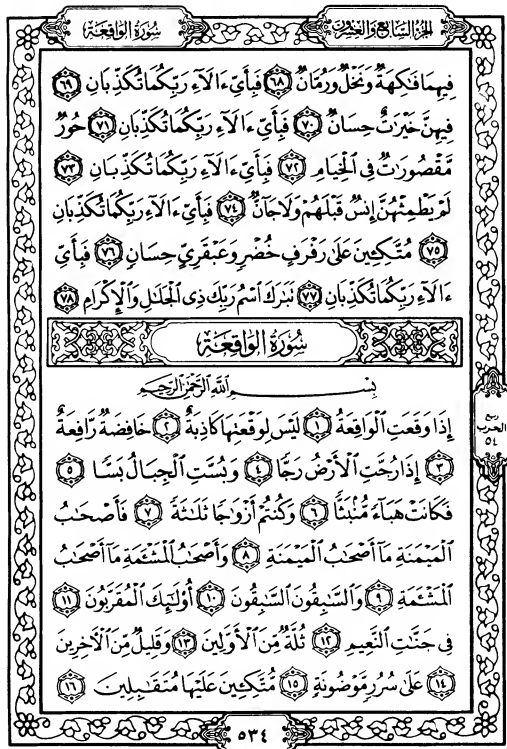 الجزء السابع والعشرون
سورة الواقعة
فِيهِمَا فَٰكِهَةٌ وَنَخْلٌ وَرُمَّانٌ ٦٨ فَبِأَيِّ ءَالَآءِ رَبِّكُمَا تُكَذِّبَانِ ٦٩
فِيهِنَّ خَيْرَٰتٌ حِسَانٌ ٧٠ فَبِأَيِّ ءَالَآءِ رَبِّكُمَا تُكَذِّبَانِ ٧١ حُورٌ
مَّقْصُورَٰتٌ فِي الْخِيَامِ ٧٢ فَبِأَيِّ ءَالَآءِ رَبِّكُمَا تُكَذِّبَانِ ٧٣
لَمْ يَطْمِثْهُنَّ إِنسٌ قَبْلَهُمْ وَلَا جَآنٌّ ٧٤ فَبِأَيِّ ءَالَآءِ رَبِّكُمَا تُكَذِّبَانِ
٧٥ مُتَّكِـِٔينَ عَلَىٰ رَفْرَفٍ خُضْرٍ وَعَبْقَرِيٍّ حِسَانٍ ٧٦ فَبِأَيِّ
ءَالَآءِ رَبِّكُمَا تُكَذِّبَانِ ٧٧ تَبَٰرَكَ ٱسْمُ رَبِّكَ ذِي ٱلْجَلَٰلِ وَٱلْإِكْرَامِ ٧٨
سُورَةُ الوَاقِعَة
بِسْمِ ٱللَّهِ ٱلرَّحْمَٰنِ ٱلرَّحِيمِ
إِذَا وَقَعَتِ ٱلْوَاقِعَةُ ١ لَيْسَ لِوَقْعَتِهَا كَاذِبَةٌ ٢ خَافِضَةٌ رَّافِعَةٌ
٣ إِذَا رُجَّتِ ٱلْأَرْضُ رَجًّا ٤ وَبُسَّتِ ٱلْجِبَالُ بَسًّا ٥
فَكَانَتْ هَبَآءً مُّنۢبَثًّا ٦ وَكُنتُمْ أَزْوَٰجًا ثَلَٰثَةً ٧ فَأَصْحَٰبُ
ٱلْمَيْمَنَةِ مَآ أَصْحَٰبُ ٱلْمَيْمَنَةِ ٨ وَأَصْحَٰبُ ٱلْمَشْـَٔمَةِ مَآ أَصْحَٰبُ
ٱلْمَشْـَٔمَةِ ٩ وَٱلسَّٰبِقُونَ ٱلسَّٰبِقُونَ ١٠ أُو۟لَٰٓئِكَ ٱلْمُقَرَّبُونَ ١١
فِي جَنَّٰتِ ٱلنَّعِيمِ ١٢ ثُلَّةٌ مِّنَ ٱلْأَوَّلِينَ ١٣ وَقَلِيلٌ مِّنَ ٱلْءَاخِرِينَ
١٤ عَلَىٰ سُرُرٍ مَّوْضُونَةٍ ١٥ مُّتَّكِـِٔينَ عَلَيْهَا مُتَقَٰبِلِينَ ١٦
ربع
الحزب
٥٤
٥٣٤